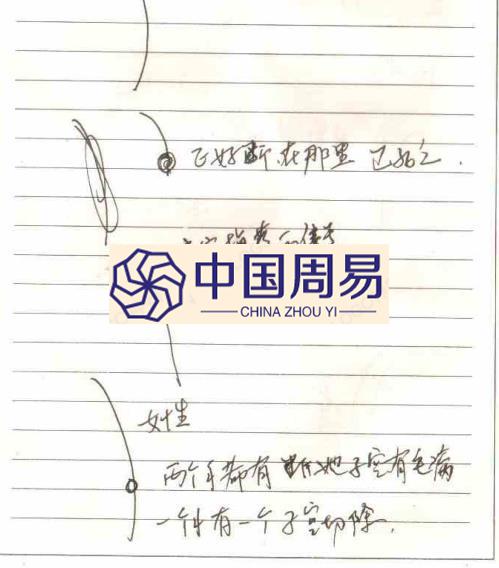 正好断在那里
中国周易
CHINA ZHOU YI
女性
两个手都有 断她子宫有毛病
一个有一个子宫切除.